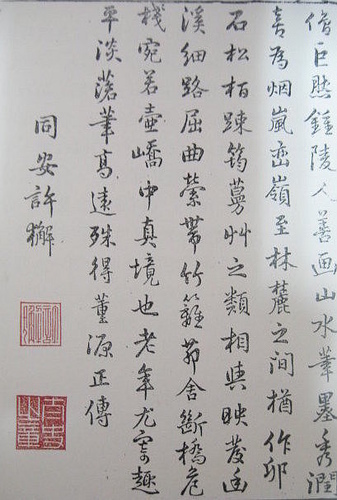 僧巨然鍾陵人善画山水筆墨秀潤
喜為烟嵐峦嶺至林麓之间猶作卵
石松栢踈筠蔓艸之類相與映蔆幽
溪细路屈曲縈帶竹籬茆舍斷橋危
棧宛若壺嶠中真境也老年尤寄趣
平淡蕩筆高遠殊得董源正傳
同安許獬